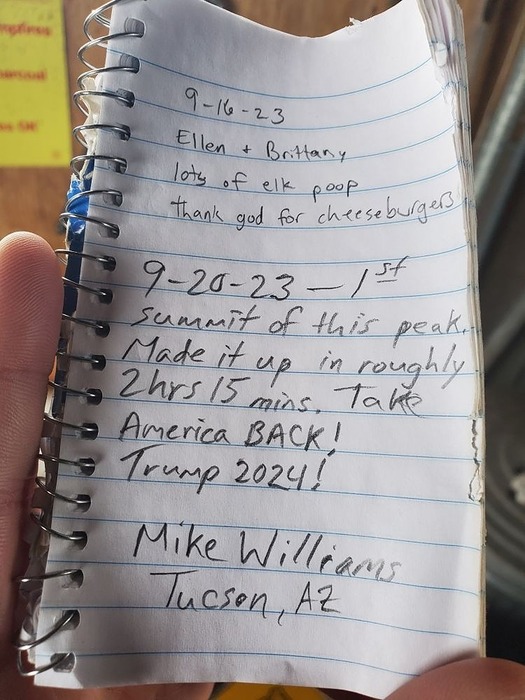 9-16-23
Ellen + Brittany
lots of elk poop
thank god for cheeseburgers
9-20-23 — 1st
summit of this peak.
Made it up in roughly
2hrs 15 mins. Take
America BACK!
Trump 2024!
Mike Williams
Tucson, AZ